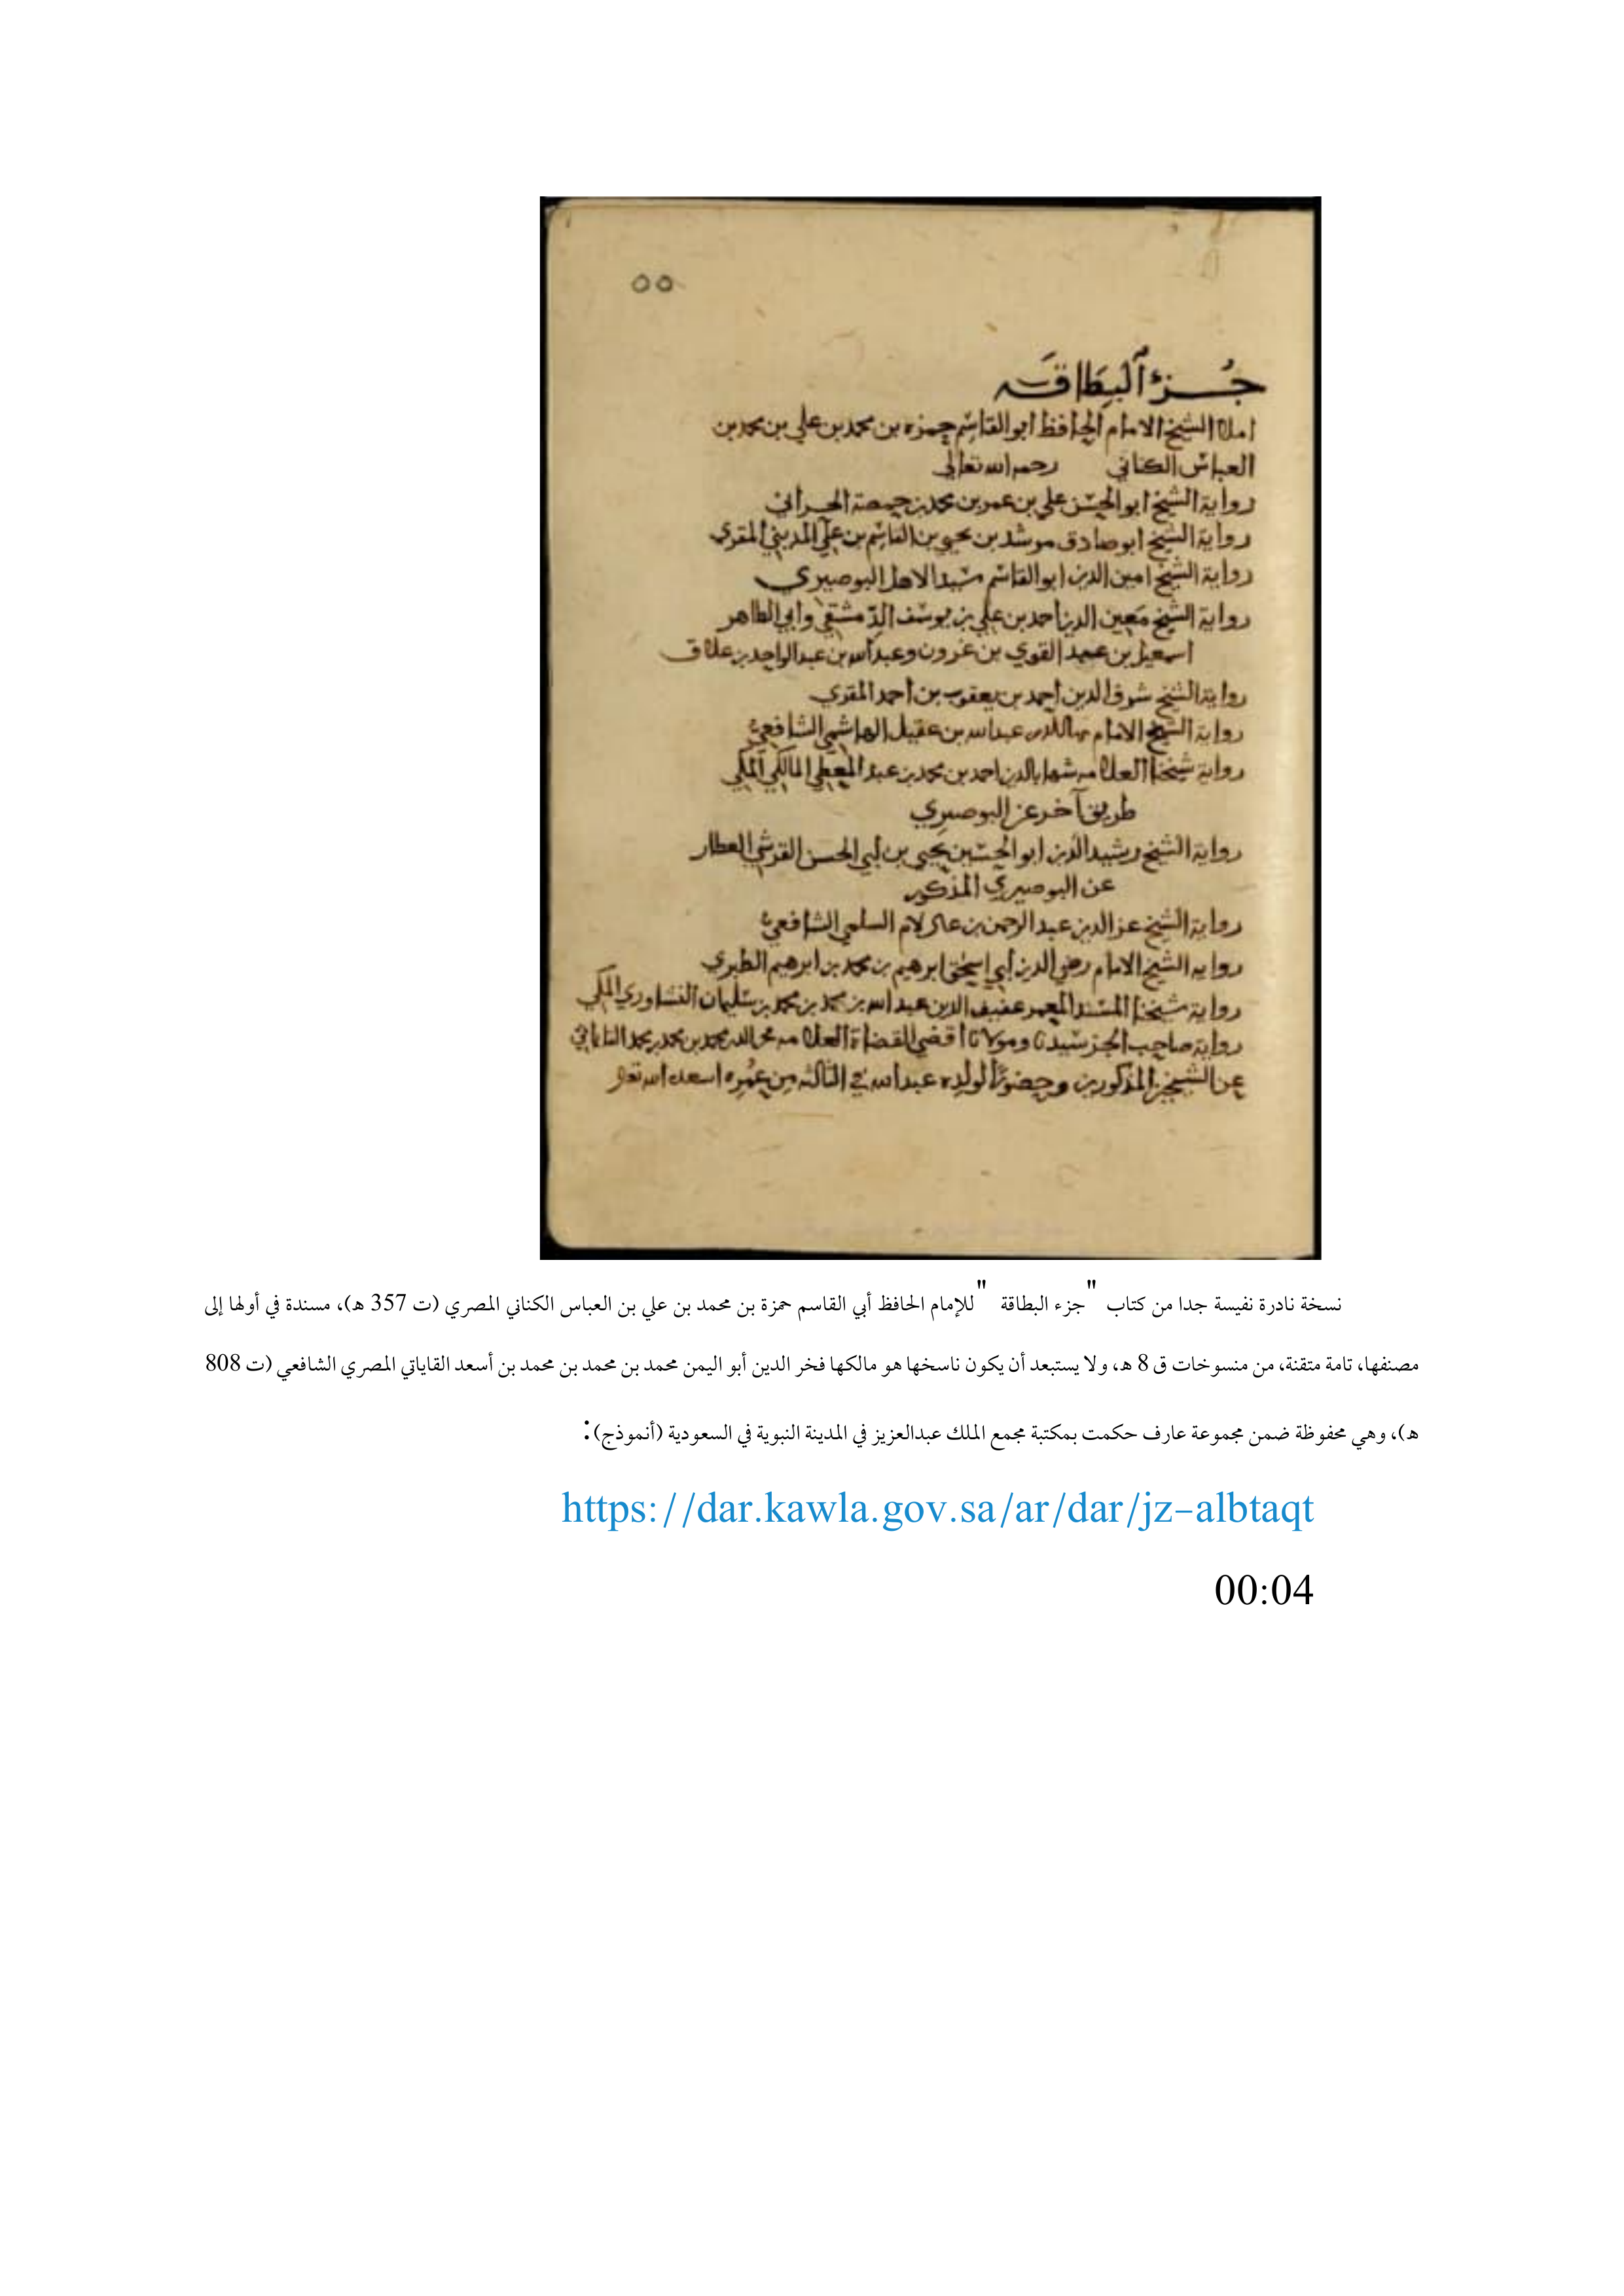 ٥٥
جُزءُ البِطَاقَه
املاء الشيخ الامام الحافظ ابو القاسم حمزه بن محمد بن علي بن محمد بن
العباس الكناني رحمه الله تعالى
رواية الشيخ ابو الحسن علي بن عمر بن محمد بن حمصة الحراني
رواية الشيخ ابو صادق مرشد بن يحيى بن القاسم بن علي المديني المقري
رواية الشيخ امين الدين ابو القاسم سيد الاهل البوصيري
رواية الشيخ معين الدين احمد بن علي بن يوسف الدمشقي وابي الطاهر
اسمعيل بن عبد القوي بن عزون وعبد الله بن عبد الواحد بن علاق
رواية الشيخ شرف الدين احمد بن يعقوب بن احمد المقري
رواية الشيخ الامام بهاء الدين عبد الله بن عقيل الهاشمي الشافعي
رواية شيخنا العلامه شهاب الدين احمد بن محمد بن عبد المعطي المالكي المكي
طريق آخر عن البوصيري
رواية الشيخ رشيد الدين ابو الحسين يحيى بن أبي الحسن القرشي العطار
عن البوصيري المذكور
رواية الشيخ عز الدين عبد الرحمن بن السلمي الشافعي
رواية الشيخ الامام رضي الدين أبي اسحق ابرهيم بن محمد بن ابرهيم الطبري
رواية شيخنا المسند المعمر عفيف الدين عبد الله بن محمد بن محمد بن سليمان النشاوري المكي
رواية صاحب الجزء سيدنا ومولانا أقضى القضاة العلامه محمد بن محمد بن محمد القاياتي
عن الشيخين المذكورين وحضورًا لولده عبد الله في الثالثه من عمره اسعده الله تعالى
نسخة نادرة نفيسة جدا من كتاب "جزء البطاقة" للإمام الحافظ أبي القاسم حمزة بن محمد بن علي بن العباس الكناني المصري (ت 357 هـ)، مسندة في أولها إلى
مصنفها، تامة متقنة، من منسوخات ق 8 هـ، ولا يستبعد أن يكون ناسخها هو مالكها فخر الدين أبو اليمن محمد بن محمد بن محمد بن أسعد القاياتي المصري الشافعي (ت 808
هـ)، وهي محفوظة ضمن مجموعة عارف حكمت بمكتبة مجمع الملك عبدالعزيز في المدينة النبوية في السعودية (أنموذج):
https://dar.kawla.gov.sa/ar/dar/jz-albtaqt
00:04